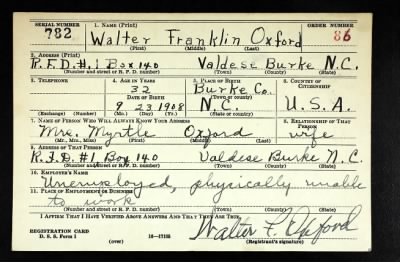 SERIAL NUMBER 1. NAME (Print) ORDER NUMBER
782 Walter Franklin Oxford 86
(First) (Middle) (Last)
2. ADDRESS (Print)
R.F.D.#1 Box 140 Valdese Burke N.C.
(Number and street or R. F. D. number) (Town) (County) (State)
3. TELEPHONE 4. AGE IN YEARS 5. PLACE OF BIRTH 6. COUNTRY OF CITIZENSHIP
32 Burke Co.
DATE OF BIRTH (Town or county)
9 23 1908 N.C. U.S.A.
(Exchange) (Number) (Mo.) (Day) (Yr.) (State or country)
7. NAME OF PERSON WHO WILL ALWAYS KNOW YOUR ADDRESS 8. RELATIONSHIP OF THAT PERSON
Mrs. Myrtle Oxford wife
(Mr., Mrs., Miss) (First) (Middle) (Last)
9. ADDRESS OF THAT PERSON
R.F.D.#1 Box 140 Valdese Burke N.C.
(Number and street or R. F. D. number) (Town) (County) (State)
10. EMPLOYER'S NAME
Unemployed, physically unable
11. PLACE OF EMPLOYMENT OR BUSINESS
to work
(Number and street or R. F. D. number) (Town) (County) (State)
I AFFIRM THAT I HAVE VERIFIED ABOVE ANSWERS AND THAT THEY ARE TRUE.
REGISTRATION CARD Walter F. Oxford
D. S. S. Form 1 (over) 16—17105 (Registrant's signature)